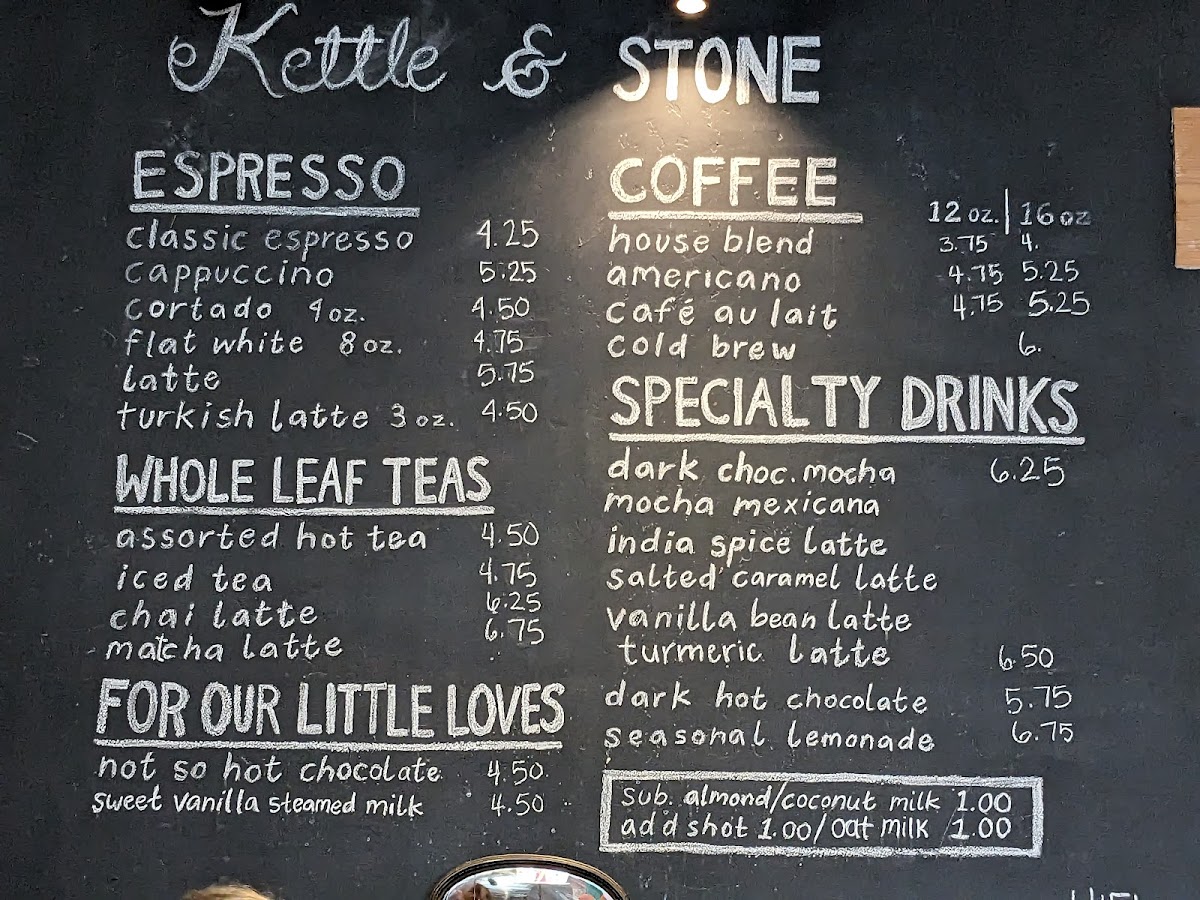 Kettle & STONE
ESPRESSO
classic espresso 4.25
cappuccino 5.25
cortado 4 oz. 4.50
flat white 8 oz. 4.75
latte 5.75
turkish latte 3 oz. 4.50
WHOLE LEAF TEAS
assorted hot tea 4.50
iced tea 4.75
chai latte 6.25
matcha latte 6.75
FOR OUR LITTLE LOVES
not so hot chocolate 4.50
sweet vanilla steamed milk 4.50
COFFEE
12 oz. | 16 oz
house blend 3.75 4.
americano 4.75 5.25
café au lait 4.75 5.25
cold brew 6.
SPECIALTY DRINKS
dark choc. mocha 6.25
mocha mexicana
india spice latte
salted caramel latte
vanilla bean latte
turmeric latte 6.50
dark hot chocolate 5.75
seasonal lemonade 6.75
sub. almond/coconut milk 1.00
add shot 1.00/oat milk 1.00